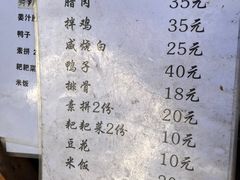 腊肉 35元
拌鸡 35元
咸烧白 25元
鸭子 40元
排骨 18元
素拼2份 20元
粑粑菜2份 10元
豆花 10元
米饭
姜汁
鸭子
素拼
粑粑菜
米饭